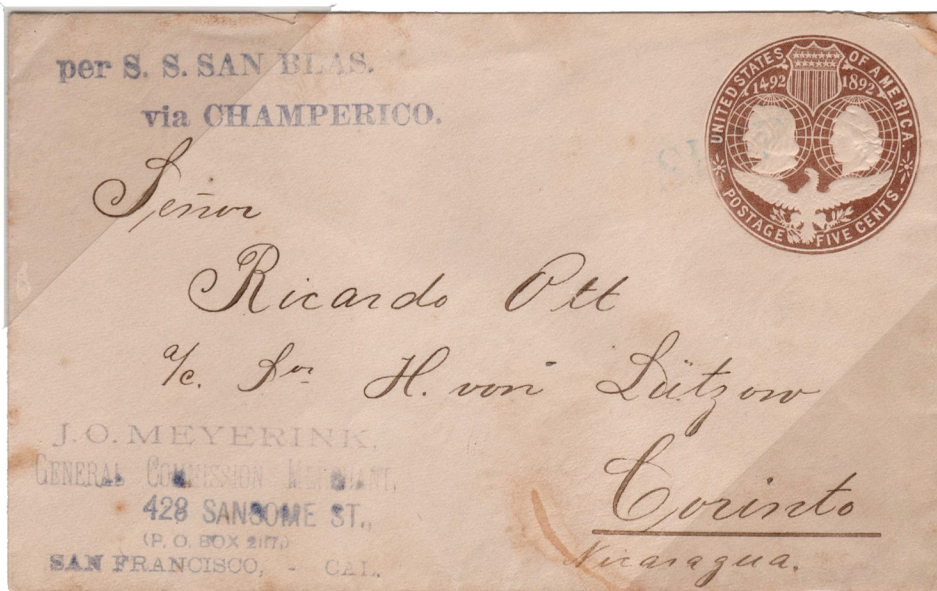 per S. S. SAN BLAS.
via CHAMPERICO.
UNITED STATES OF AMERICA
1492 1892
POSTAGE FIVE CENTS.
Señor
Ricardo Ott
a/c. Sor H. von Lützow
Corinto
Nicaragua.
J. O. MEYERINK,
GENERAL COMMISSION MERCHANT,
428 SANSOME ST.,
(P. O. BOX 2117,)
SAN FRANCISCO, - CAL.